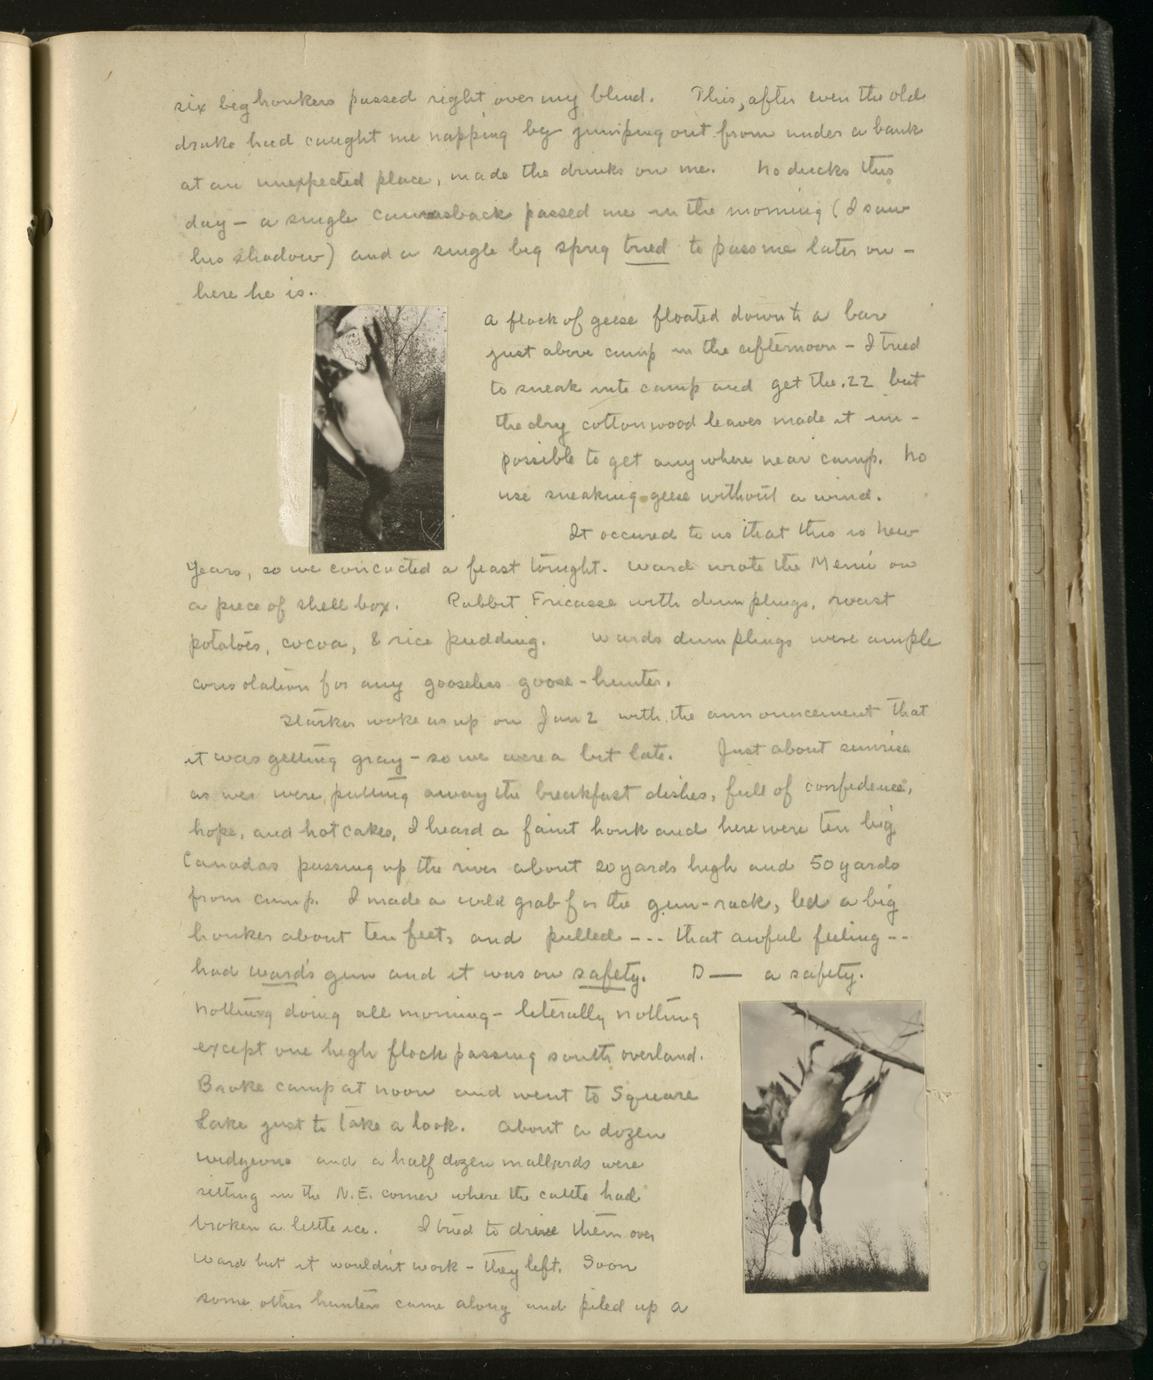 six big honkers passed right over my blind. This, after even the old
drake had caught me napping by jumping out from under a bank
at an unexpected place, made the drinks on me. No ducks this
day - a single canvasback passed me in the morning (I saw
his shadow) and a single big sprig tried to pass me later on -
here he is.
A flock of geese floated down to a bar
just above camp in the afternoon - I tried
to sneak into camp and get the .22 but
the dry cottonwood leaves made it im-
possible to get anywhere near camp. No
use sneaking geese without a wind.
It occured to us that this is New
Years, so we concocted a feast tonight. Ward wrote the Menu on
a piece of shell box. Rabbit Fricasse with dumplings, roast
potatoes, cocoa, & rice pudding. Wards dumplings were ample
consolation for any gooseless goose-hunter.
Starker woke us up on Jan 2 with the announcement that
it was getting gray - so we were a bit late. Just about sunrise
as we were putting away the breakfast dishes, full of confidence,
hope, and hot cakes, I heard a faint honk and here were ten big
Canadas passing up the river about 20 yards high and 50 yards
from camp. I made a wild grab for the gun-rack, led a big
honker about ten feet, and pulled --- that awful feeling --
had Ward's gun and it was on safety. D—— a safety.
Nothing doing all morning - literally nothing
except one high flock passing south overland.
Broke camp at noon and went to Square
Lake just to take a look. About a dozen
widgeons and a half dozen mallards were
sitting in the N.E. corner where the cattle had
broken a little ice. I tried to drive them over
Ward but it wouldn't work - they left. Soon
some other hunters came along and piled up a